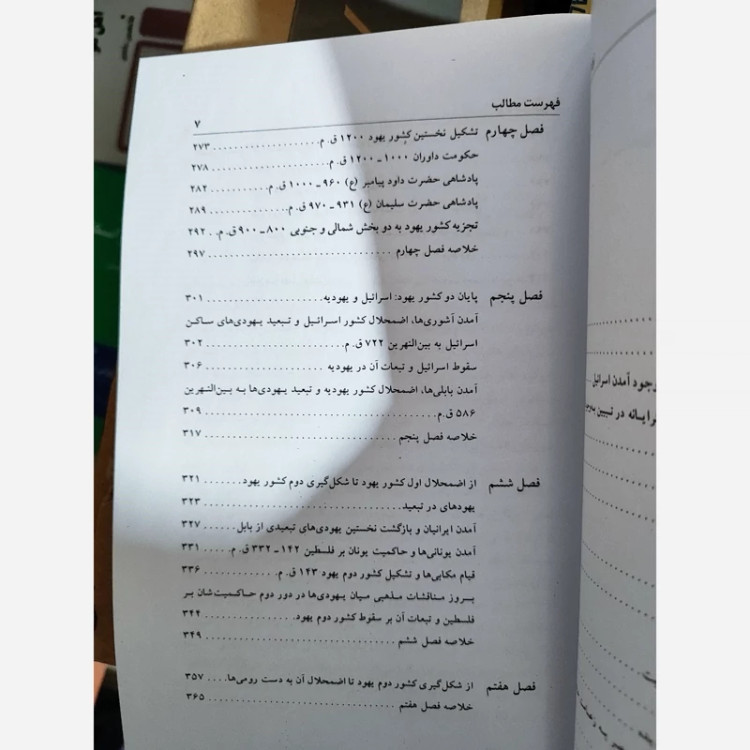 فهرست مطالب ۷
فصل چهارم تشکیل نخستین کشور یهود ۱۲۰۰ ق. م. .......... ۲۷۳
حکومت داوران ۱۰۰۰ ـ ۱۲۰۰ ق. م. .......... ۲۷۸
پادشاهی حضرت داود پیامبر (ع) ۹۶۰ ـ ۱۰۰۰ ق.م. .......... ۲۸۲
پادشاهی حضرت سلیمان (ع) ۹۳۱ ـ ۹۷۰ ق.م. .......... ۲۸۹
تجزیه کشور یهود به دو بخش شمالی و جنوبی ۸۰۰ ـ ۹۰۰ ق.م. .. ۲۹۲
خلاصه فصل چهارم .......... ۲۹۷
فصل پنجم پایان دو کشور یهود: اسرائیل و یهودیه .......... ۳۰۱
آمدن آشوری‌ها، اضمحلال کشور اسرائیل و تبعید یهودی‌های ساکن
اسرائیل به بین‌النهرین ۷۲۲ ق. م. .......... ۳۰۲
سقوط اسرائیل و تبعات آن در یهودیه .......... ۳۰۶
آمدن بابلی‌ها، اضمحلال کشور یهودیه و تبعید یهودی‌ها به بین‌النهرین
۵۸۶ ق.م. .......... ۳۰۹
خلاصه فصل پنجم .......... ۳۱۷
فصل ششم از اضمحلال اول کشور یهود تا شکل‌گیری دوم کشور یهود ....... ۳۲۱
یهودهای در تبعید .......... ۳۲۳
آمدن ایرانیان و بازگشت نخستین یهودی‌های تبعیدی از بابل ...... ۳۲۷
آمدن یونانی‌ها و حاکمیت یونان بر فلسطین ۱۴۲ ـ ۳۳۲ ق. م. ..... ۳۳۱
قیام مکابی‌ها و تشکیل کشور دوم یهود ۱۴۳ ق. م. .......... ۳۳۶
بروز مناقشات مذهبی میان یهودی‌ها در دور دوم حاکمیت‌شان بر
فلسطین و تبعات آن بر سقوط کشور دوم یهود. .......... ۳۴۴
خلاصه فصل ششم .......... ۳۴۹
فصل هفتم از شکل‌گیری کشور دوم یهود تا اضمحلال آن به دست رومی‌ها. .... ۳۵۷
خلاصه فصل هفتم .......... ۳۶۵
آمدن اسرائیل
در تبیین